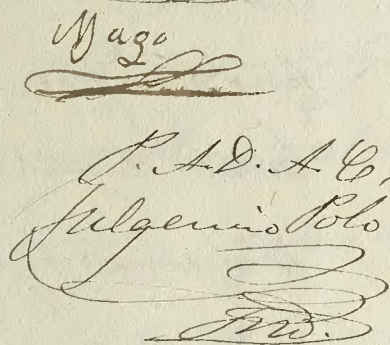 Mago
P. A. D. A. C.,
Fulgencio Polo
Srio.